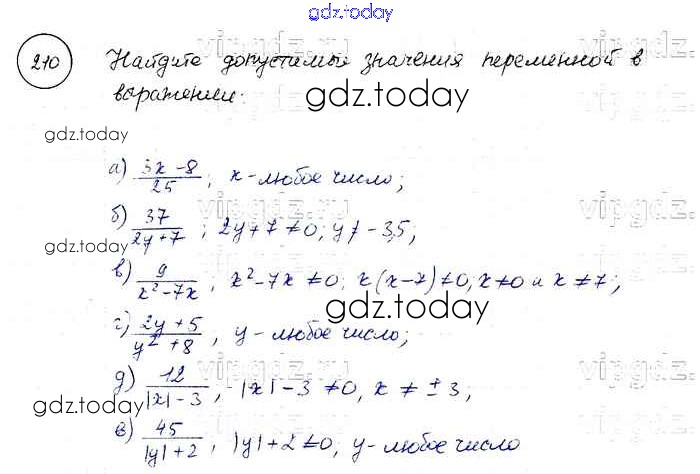 gdz.today
210 Найдите допустимый значения переменной в
выражении.
gdz.today
gdz.today
а) (3x - 8)/25; x - любое число;
б) 37/(2y + 7); 2y + 7 ≠ 0; y ≠ - 3,5;
gdz.today
в) 9/(x² - 7x), x² - 7x ≠ 0; x(x - 7) ≠ 0, x ≠ 0 и x ≠ 7;
gdz.today
г) (2y + 5)/(y² + 8), y - любое число;
д) 12/(|x| - 3), |x| - 3 ≠ 0, x ≠ ± 3;
gdz.today
gdz.today
е) 45/(|y| + 2), |y| + 2 ≠ 0, y - любое число
vipgdz.ru
vipgdz.ru
vipgdz.ru